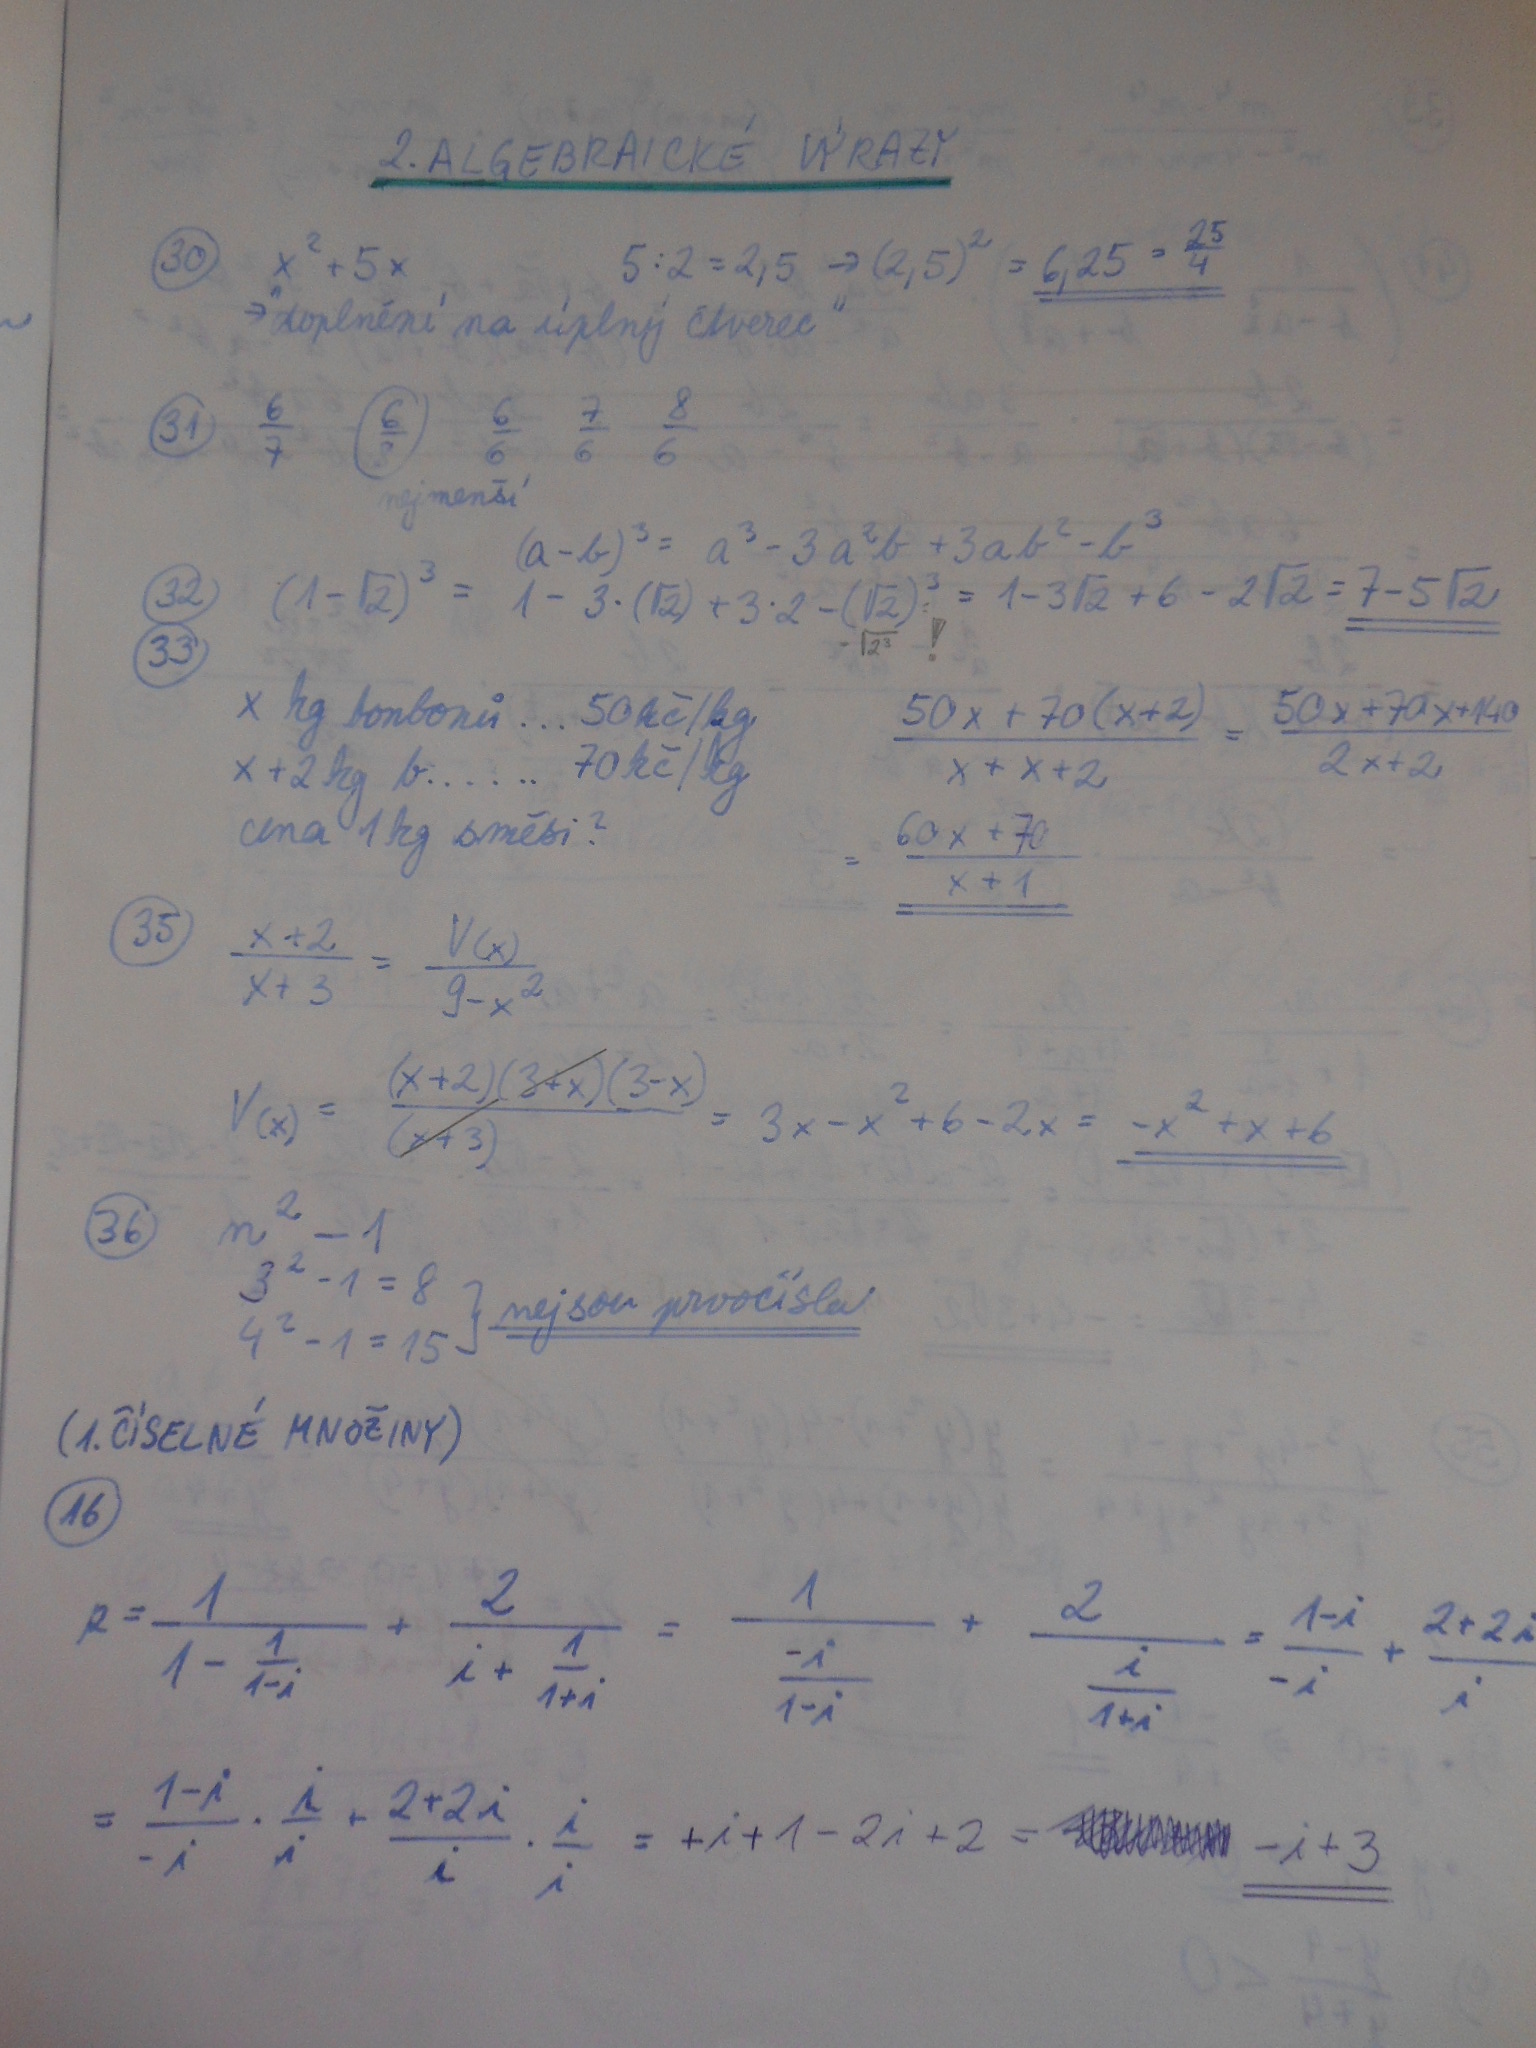 2. ALGEBRAICKÉ VÝRAZY
30 x² + 5x 5 : 2 = 2,5 → (2,5)² = 6,25 = 25/4
→ "doplnění na úplný čtverec"
31 6/7 6/8 6/6 7/6 8/6
nejmenší
(a-b)³ = a³ - 3a²b + 3ab² - b³
32 (1-√2)³ = 1 - 3·(√2) + 3·2 - (√2)³ = 1 - 3√2 + 6 - 2√2 = 7 - 5√2
-√2³ !
33
x kg bonbonů ... 50kč/kg (50x + 70(x+2))/(x + x + 2) = (50x+70x+140)/(2x+2)
x+2 kg b...... 70kč/kg
cena 1kg směsi? = (60x + 70)/(x + 1)
35 (x+2)/(x+3) = V(x)/(9-x²)
V(x) = ((x+2)(3+x)(3-x))/(x+3) = 3x - x² + 6 - 2x = -x² + x + 6
36 n² - 1
3² - 1 = 8
4² - 1 = 15 } nejsou prvočísla
(1. ČÍSELNÉ MNOŽINY)
16
z = 1/(1 - 1/(1-i)) + 2/(i + 1/(1+i)) = 1/(-i/(1-i)) + 2/(i/(1+i)) = (1-i)/-i + (2+2i)/i
= (1-i)/-i · i/i + (2+2i)/i · i/i = +i+1-2i+2 = -i+3